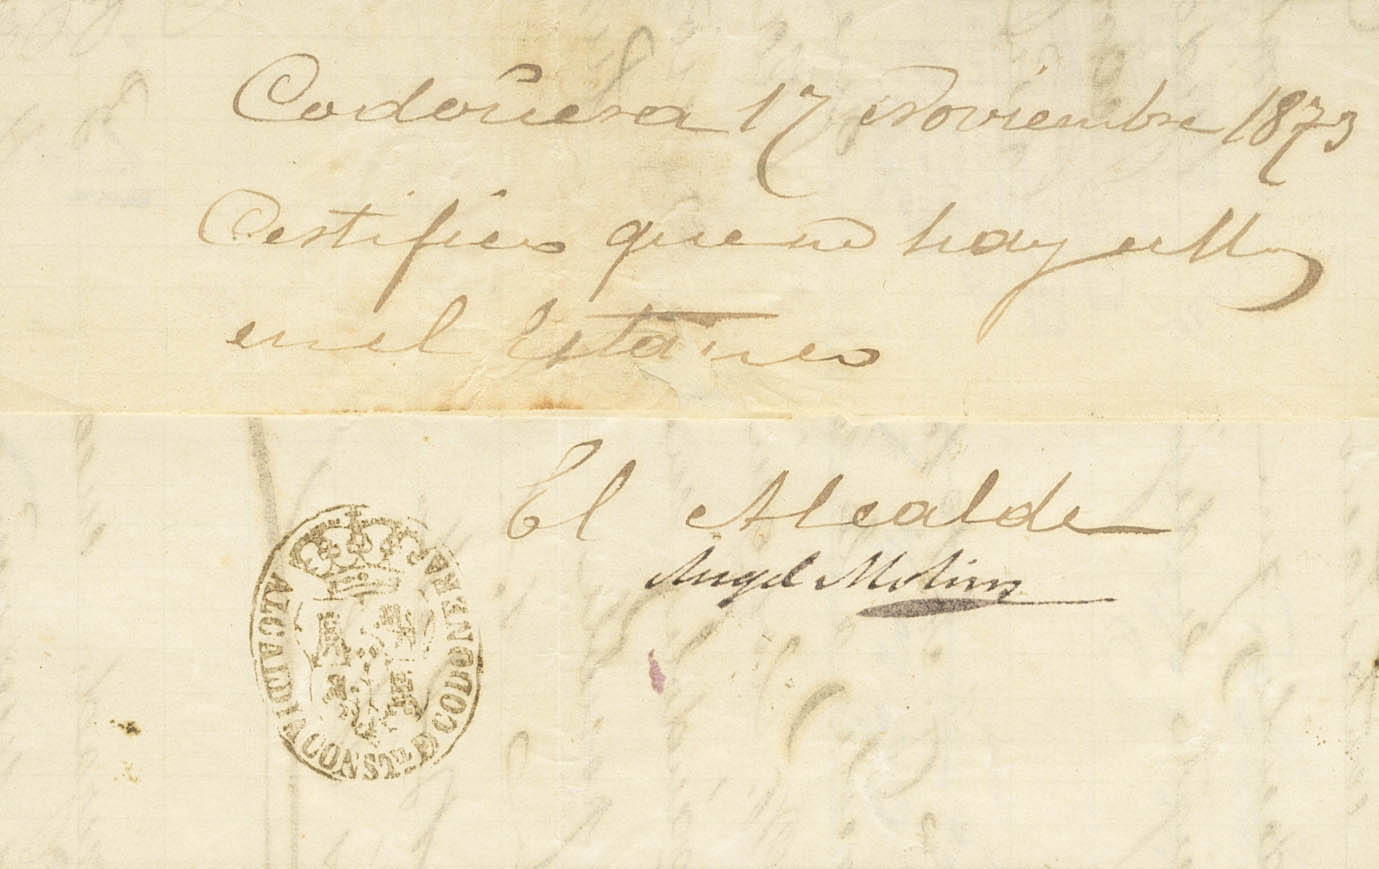 Codoñera 17 Noviembre 1873
Certifico que no hay sellos
en el Estanco
El Alcalde
Angel Molins
ALCALDIA CONSTL. DE CODOÑERA